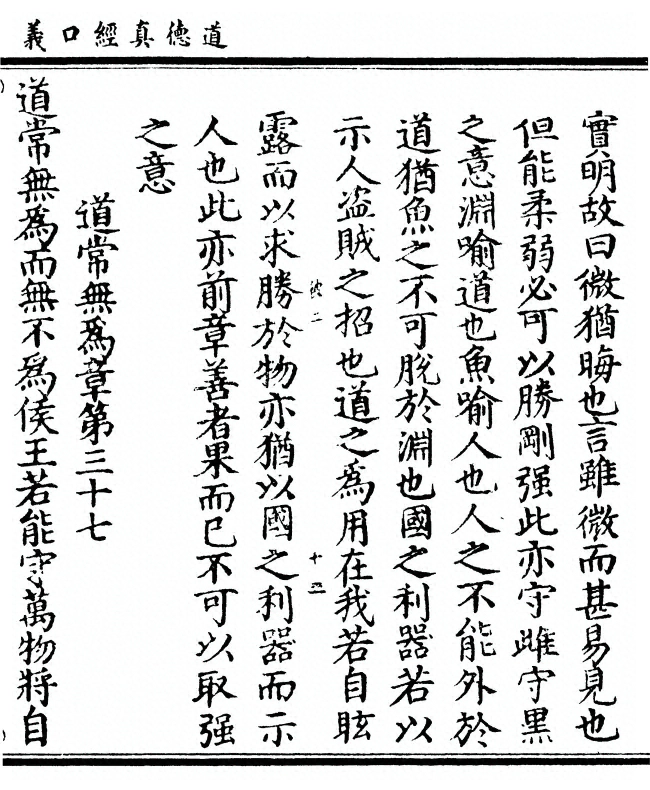 道德真經口義
實明故曰微猶晦也言雖微而甚易見也
但能柔弱必可以勝剛强此亦守雌守黑
之意淵喻道也魚喻人也人之不能外於
道猶魚之不可脫於淵也國之利器若以
示人盜賊之招也道之爲用在我若自眩
露而以求勝於物亦猶以國之利器而示
人也此亦前章善者果而已不可以取强
之意
道常無爲章第三十七
道常無爲而無不爲侯王若能守萬物將自